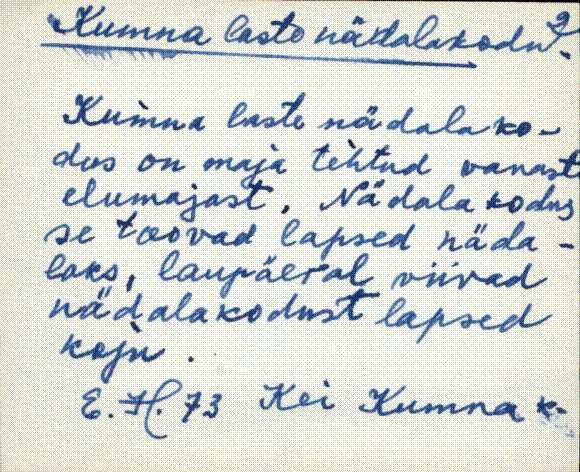 Kumna laste nädalakodu 2.
Kumna laste nädalako-
dus on maja tehtud vanast
elumajast. Nädalakodus
se toovad lapsed näda-
laks, laupäeval viivad
nädalakodust lapsed
koju.
E. H. 73 Kei Kumna k-